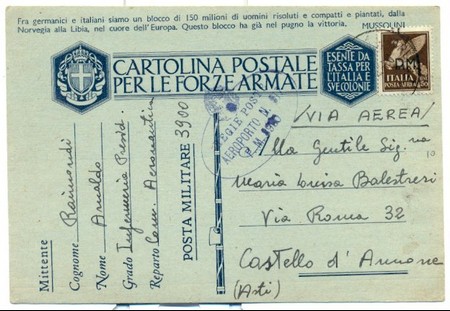 Fra germanici e italiani siamo un blocco di 150 milioni di uomini risoluti e compatti e piantati, dalla
Norvegia alla Libia, nel cuore dell'Europa. Questo blocco ha già nel pugno la vittoria.
MUSSOLINI
CARTOLINA POSTALE
PER LE FORZE ARMATE
ESENTE DA
TASSA PER
L'ITALIA E
SVE COLONIE
ITALIA
POSTA AEREA
AEROPORTO
VIA AEREA/
Alla Gentile Sig.na
Maria Luisa Balestreri
Via Roma 32
Castello d'Annone
(Asti)
Mittente
Cognome Raimondi
Nome Arnaldo
Grado Infermeria Presid.
Reparto Com. Aeronautica
POSTA MILITARE 3900